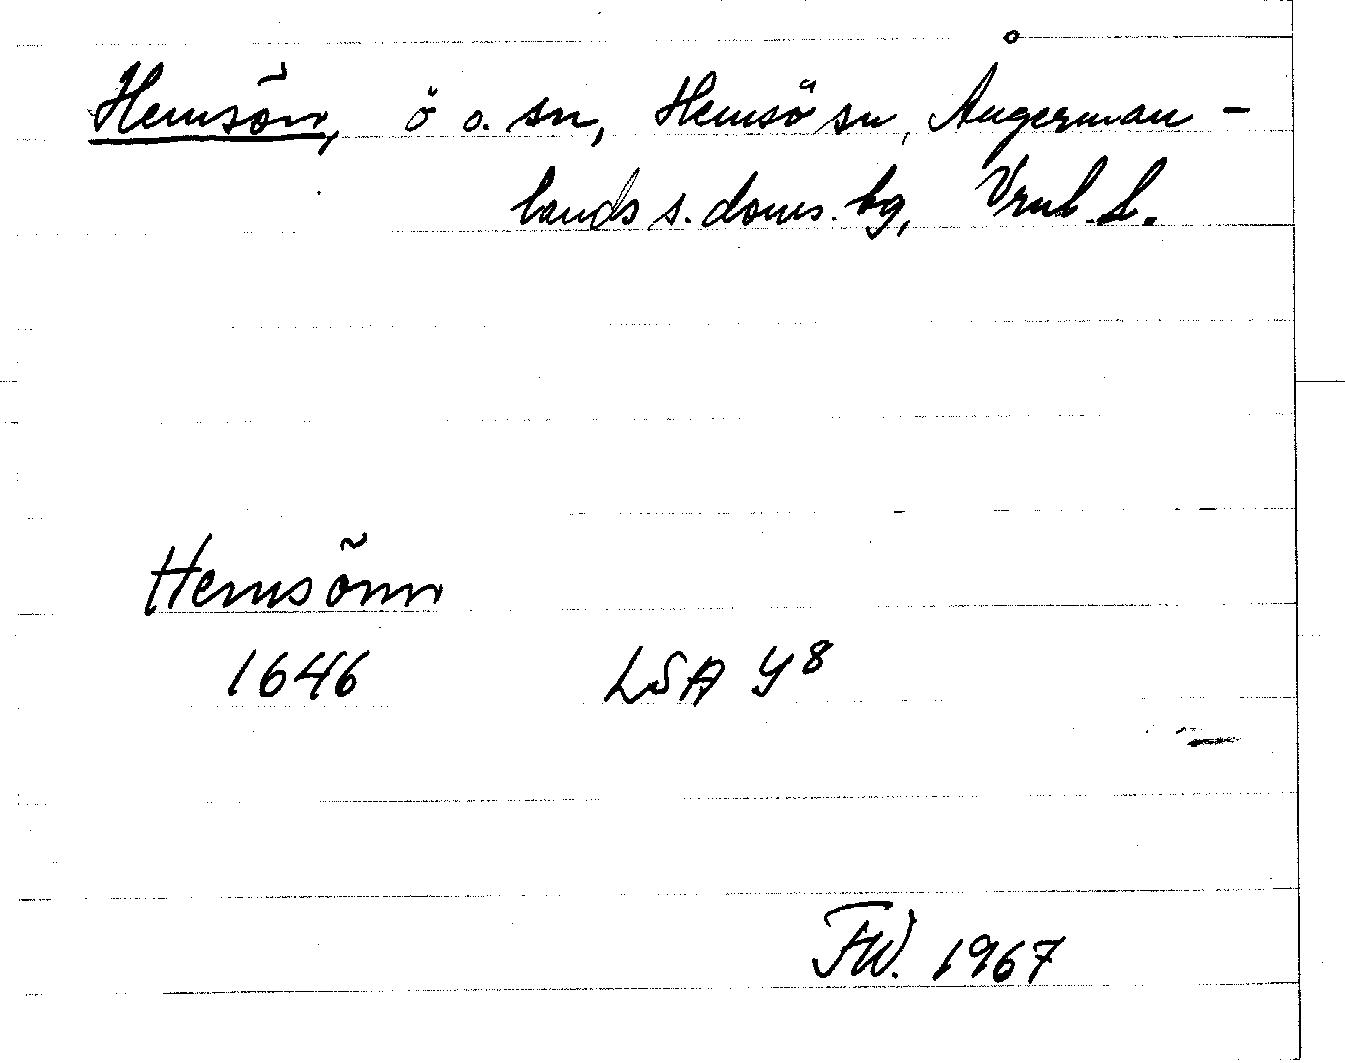 Hemsön, ö o. sn, Hemsö sn, Ångerman-
lands s. doms. bg, Vrnl. l.
Hemsönn
1646 LSA Y8
FW. 1967